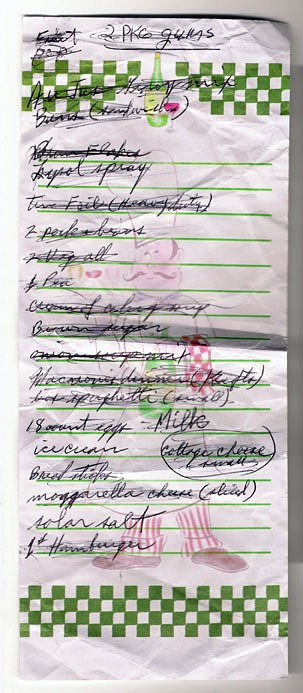 2 PKG
Au Jus gravy mix
Buns (sandwich)
Lysol spray
Foil (Heavy Duty)
2 pork & beans
2 Veg all
Cream of celery soup
Brown sugar
onion soup mix
Macaroni dinner (Kraft)
box spaghetti (small)
18 count eggs Milk
ice cream cottage cheese
small
Bread sticks
mozzarella cheese (sliced)
solar salt
1# Hamburger